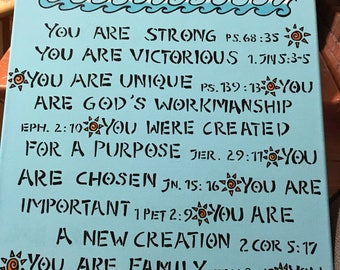 YOU ARE STRONG PS. 68:35
YOU ARE VICTORIOUS 1 JN 5:3-5
YOU ARE UNIQUE PS. 139:13 YOU
ARE GOD'S WORKMANSHIP
EPH. 2:10 YOU WERE CREATED
FOR A PURPOSE JER. 29:11 YOU
ARE CHOSEN JN. 15:16 YOU ARE
IMPORTANT 1 PET 2:9 YOU ARE
A NEW CREATION 2 COR 5:17
YOU ARE FAMILY